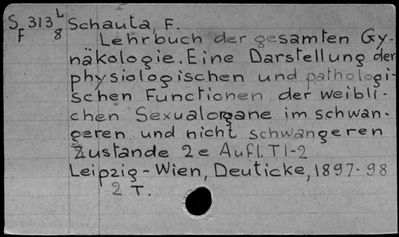 S 313 L Schauta, F.
F 8
Lehrbuch der gesamten Gy-
näkologie. Eine Darstellung der
physiologischen und pathologi-
schen Functionen der weibli-
chen Sexualorgane im schwan-
geren und nicht schwangeren
Zustande 2e Aufl. T 1-2
Leipzig - Wien, Deuticke, 1897-98
2 T.